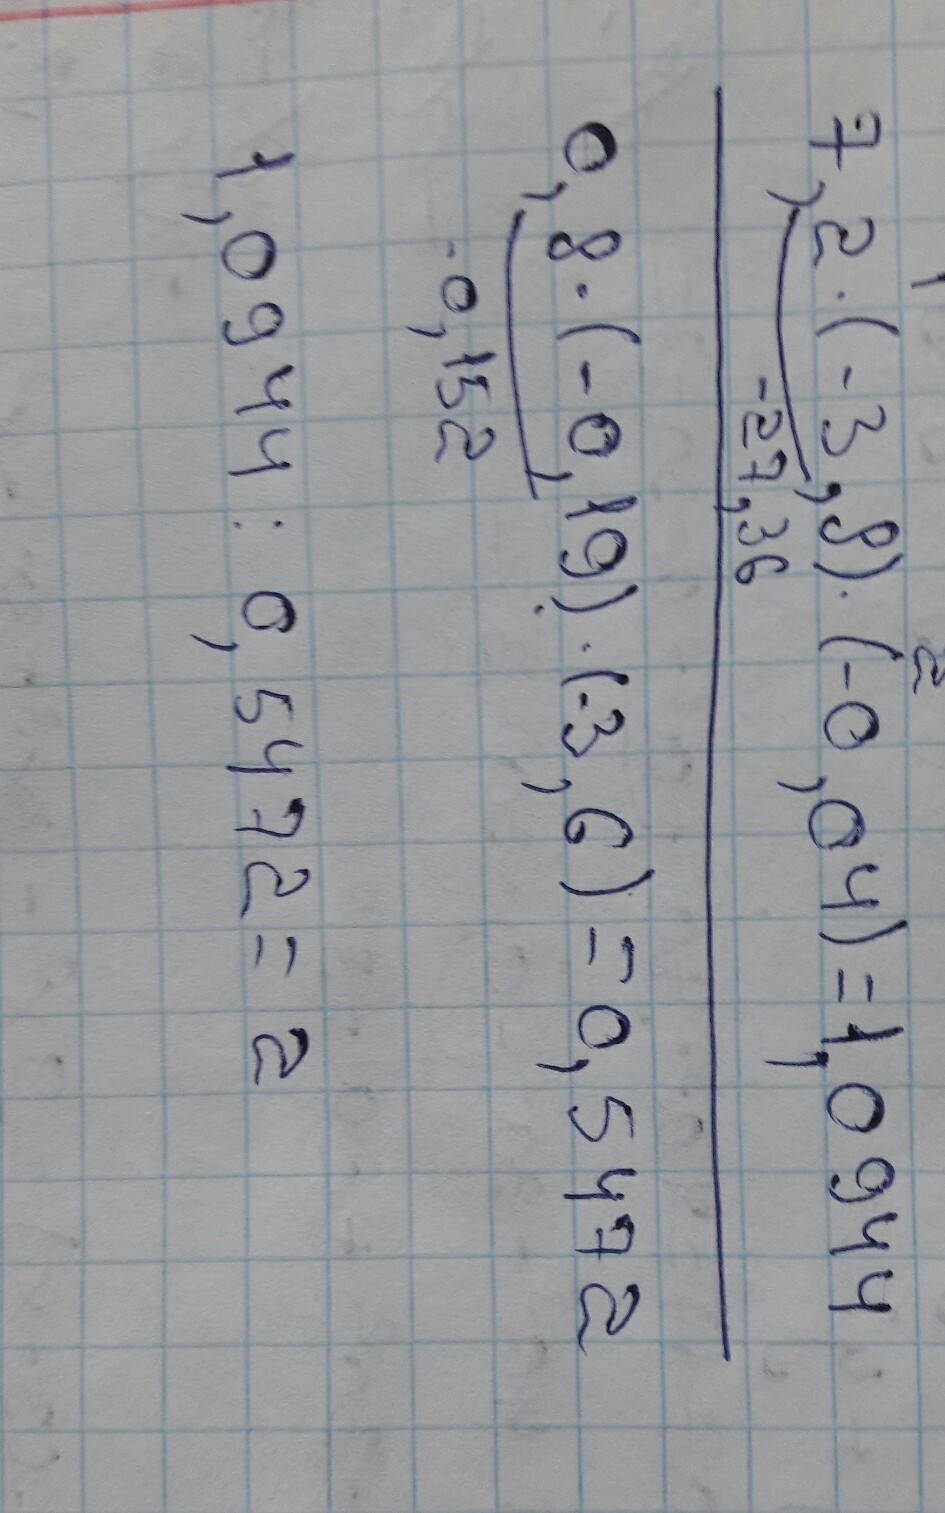 1 2
7,2·(-3,8)·(-0,04)=1,0944
-27,36
0,8·(-0,19)·(-3,6)=0,5472
-0,152
1,0944:0,5472=2